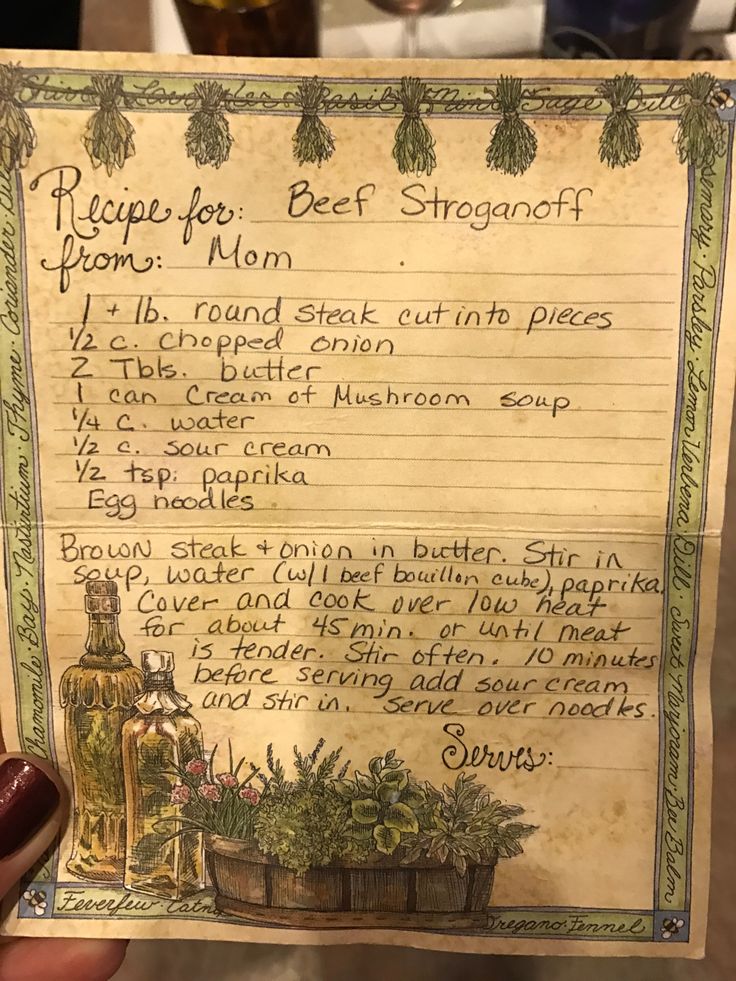 Chive Lavender Basil Mint Sage Dill
Recipe for: Beef Stroganoff
from: Mom
1 + lb. round steak cut into pieces
1/2 c. chopped onion
2 Tbls. butter
1 can Cream of Mushroom soup
1/4 c. water
1/2 c. sour cream
1/2 tsp. paprika
Egg noodles
Brown steak + onion in butter. Stir in
soup, water (w/1 beef bouillon cube), paprika.
Cover and cook over low heat
for about 45 min. or until meat
is tender. Stir often. 10 minutes
before serving add sour cream
and stir in. Serve over noodles.
Serves:
Chamomile · Bay · Nasturtium · Thyme · Coriander
Rosemary · Parsley · Lemon Verbena · Dill · Sweet Marjoram · Bee Balm
Feverfew · Catn
Oregano · Fennel